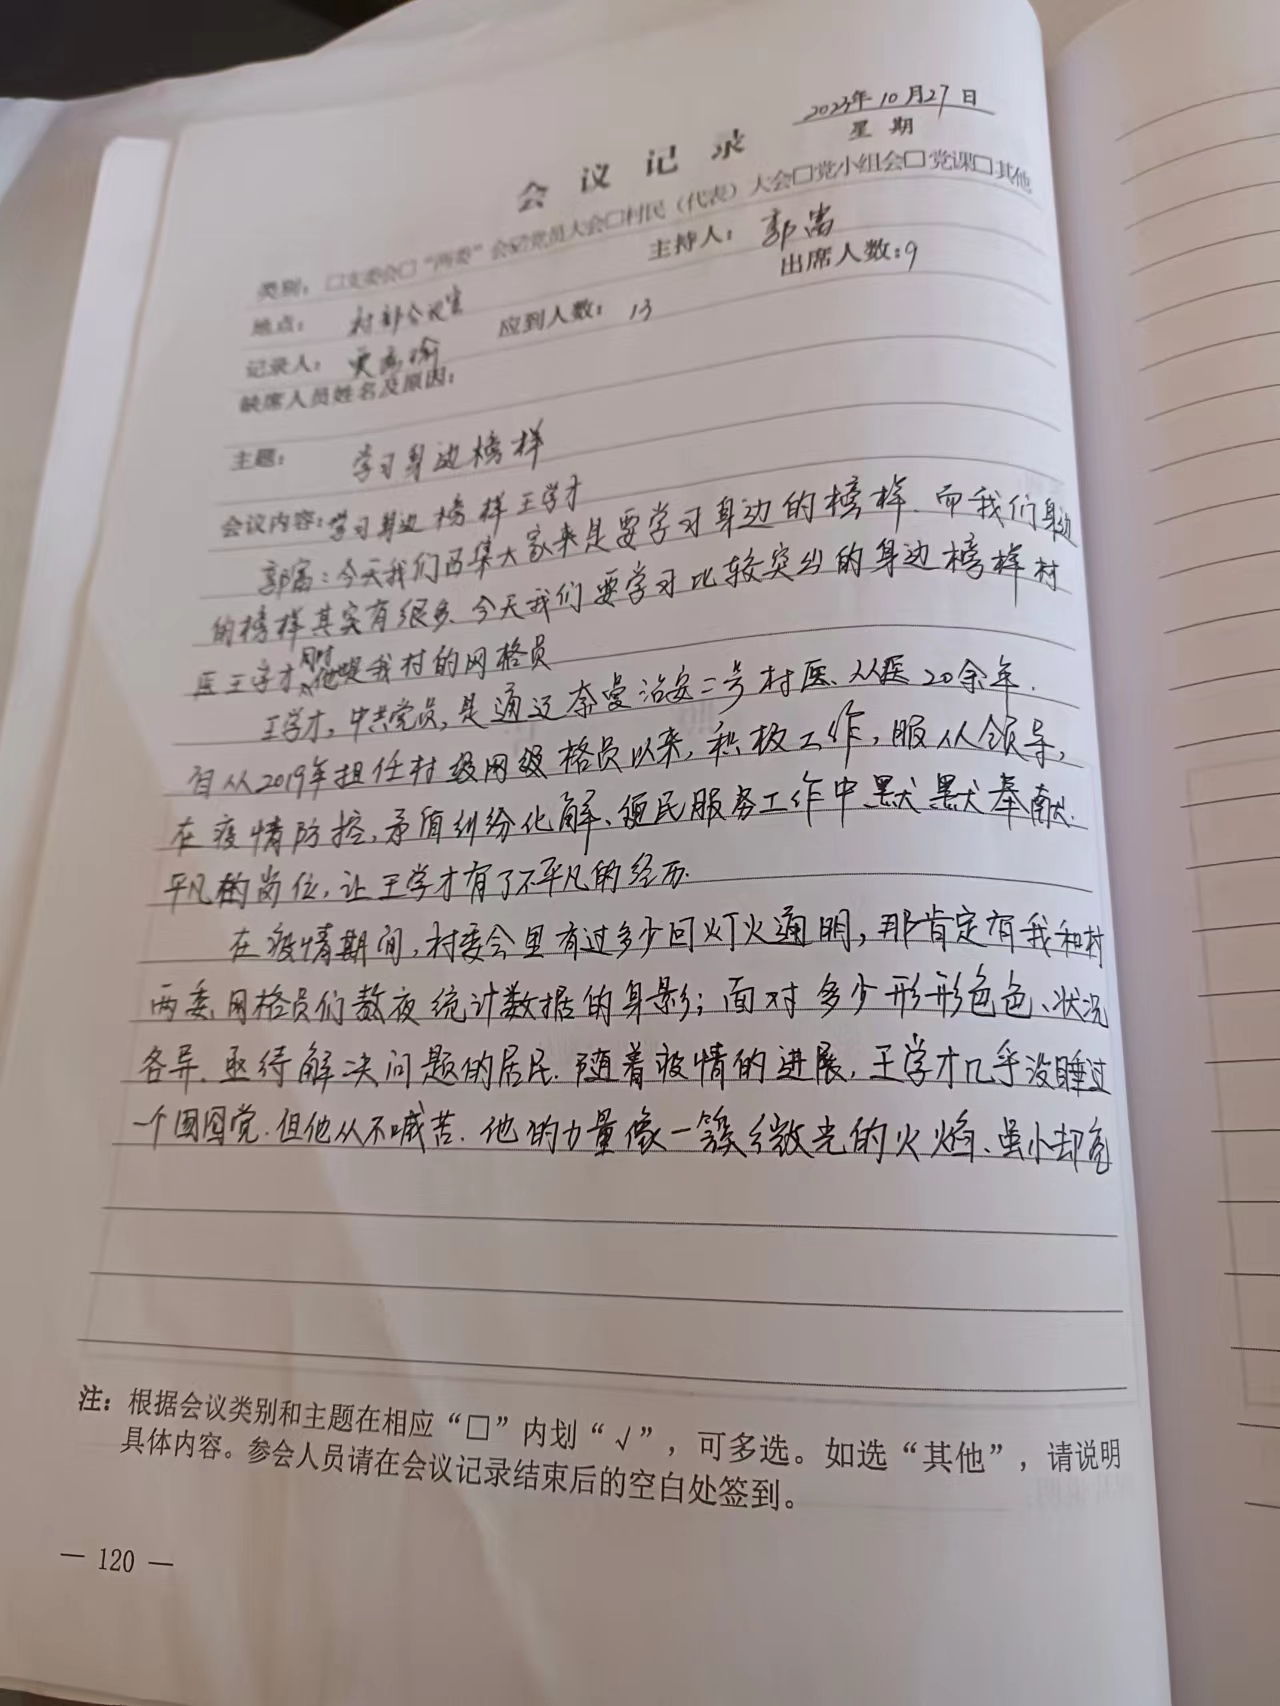 2023年10月27日
星 期
会 议 记 录
类别：□支委会□“两委”会☑党员大会□村民（代表）大会□党小组会□党课□其他
主持人：郭富
地点：村部会议室
出席人数：9
应到人数：13
记录人：
缺席人员姓名及原因：
主题：学习身边榜样
会议内容：学习身边榜样王学才
郭富：今天我们召集大家来是要学习身边的榜样.而我们身边
的榜样其实有很多.今天我们要学习比较突出的身边榜样村
医王学才.同时他是我村的网格员
王学才，中共党员，是通辽奈曼治安二号村医、从医20余年.
自从2019年担任村级网级格员以来，积极工作，服从领导，
在疫情防控，矛盾纠纷化解、便民服务工作中默默奉献.
平凡的岗位，让王学才有了不平凡的经历.
在疫情期间，村委会里有过多少回灯火通明，那肯定有我和村
两委网格员们熬夜统计数据的身影；面对多少形形色色、状况
各异、亟待解决问题的居民.随着疫情的进展，王学才几乎没睡过
一个囫囵觉.但他从不喊苦.他的力量像一簇微光的火焰、虽小却亮
注：根据会议类别和主题在相应“□”内划“√”，可多选。如选“其他”，请说明
具体内容。参会人员请在会议记录结束后的空白处签到。
— 120 —